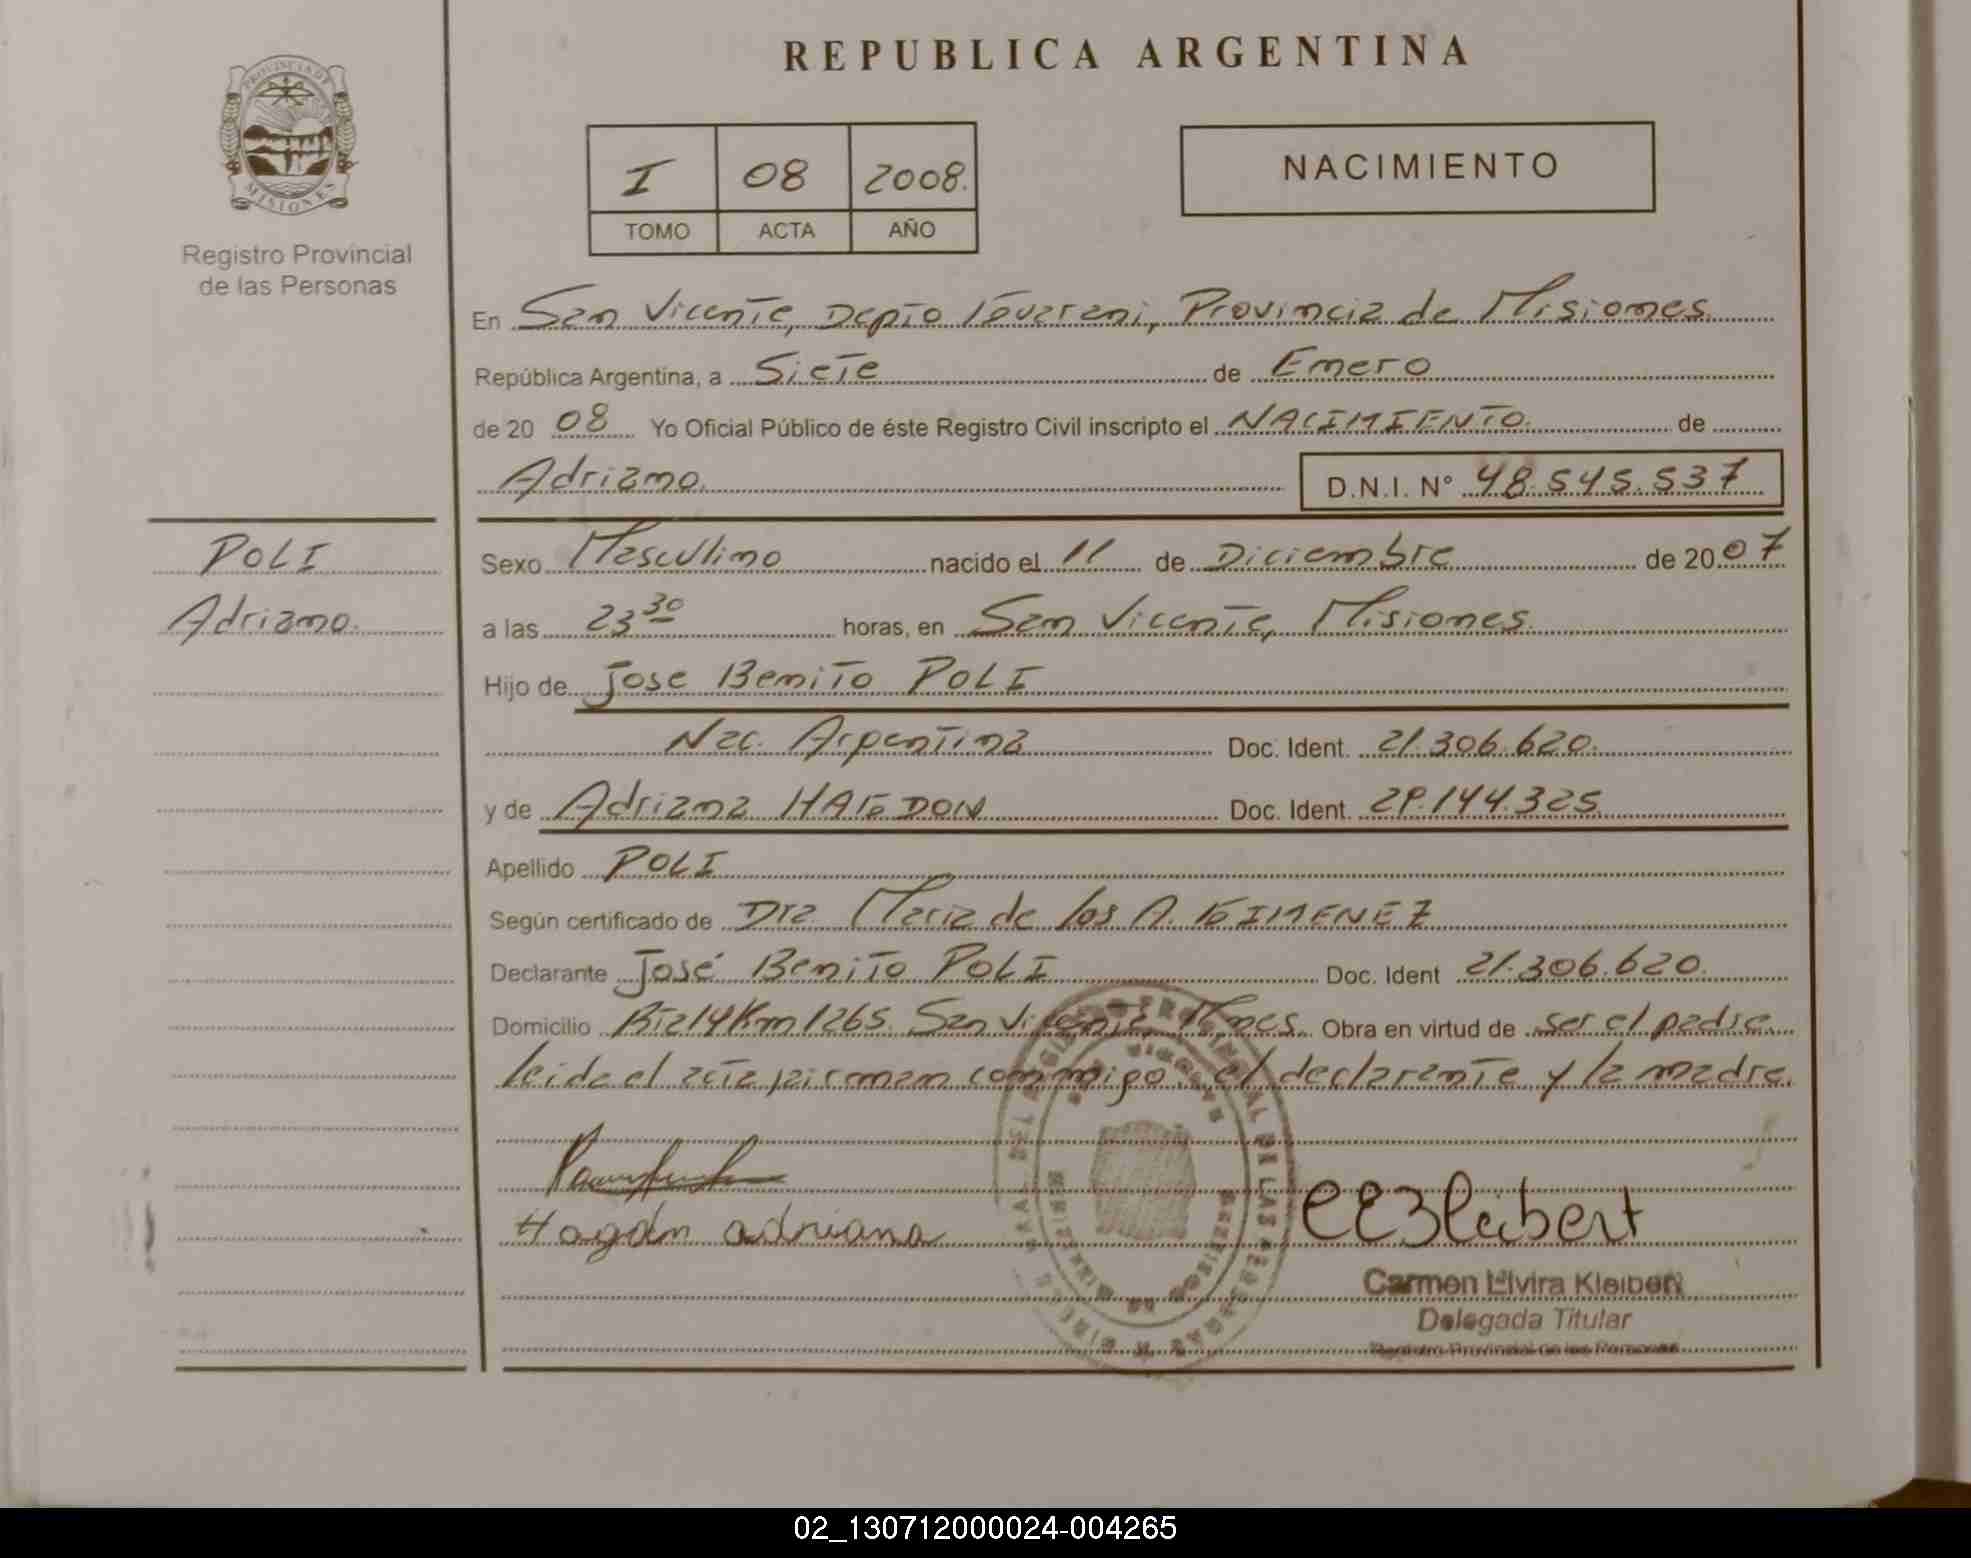 REPUBLICA ARGENTINA
PROVINCIA DE
MISIONES
Registro Provincial
de las Personas
I 08 2008.
TOMO ACTA AÑO
NACIMIENTO
En San Vicente, Depto Guarani, Provincia de Misiones.
República Argentina, a Siete de Enero
de 20 08 Yo Oficial Público de éste Registro Civil inscripto el NACIMIENTO. de
Adriano. D.N.I. N° 48.545.537
POLI
Adriano.
Sexo Masculino nacido el 11 de Diciembre de 20 07
a las 23 30 horas, en San Vicente, Misiones.
Hijo de Jose Benito POLI
Nac. Argentina Doc. Ident. 21.306.620.
y de Adriana HAGDON Doc. Ident. 29.144.325
Apellido POLI
Según certificado de Dra. Maria de los A. GIMENEZ
Declarante José Benito POLI Doc. Ident 21.306.620.
Domicilio Rta 14 Km 1265. San Vicente, Mnes. Obra en virtud de ser el padre
leida el acta, firman conmigo el declarante y la madre.
Hagdn adriana
Carmen Elvira Kleibert
Delegada Titular
Registro Provincial de las Personas
02_130712000024-004265